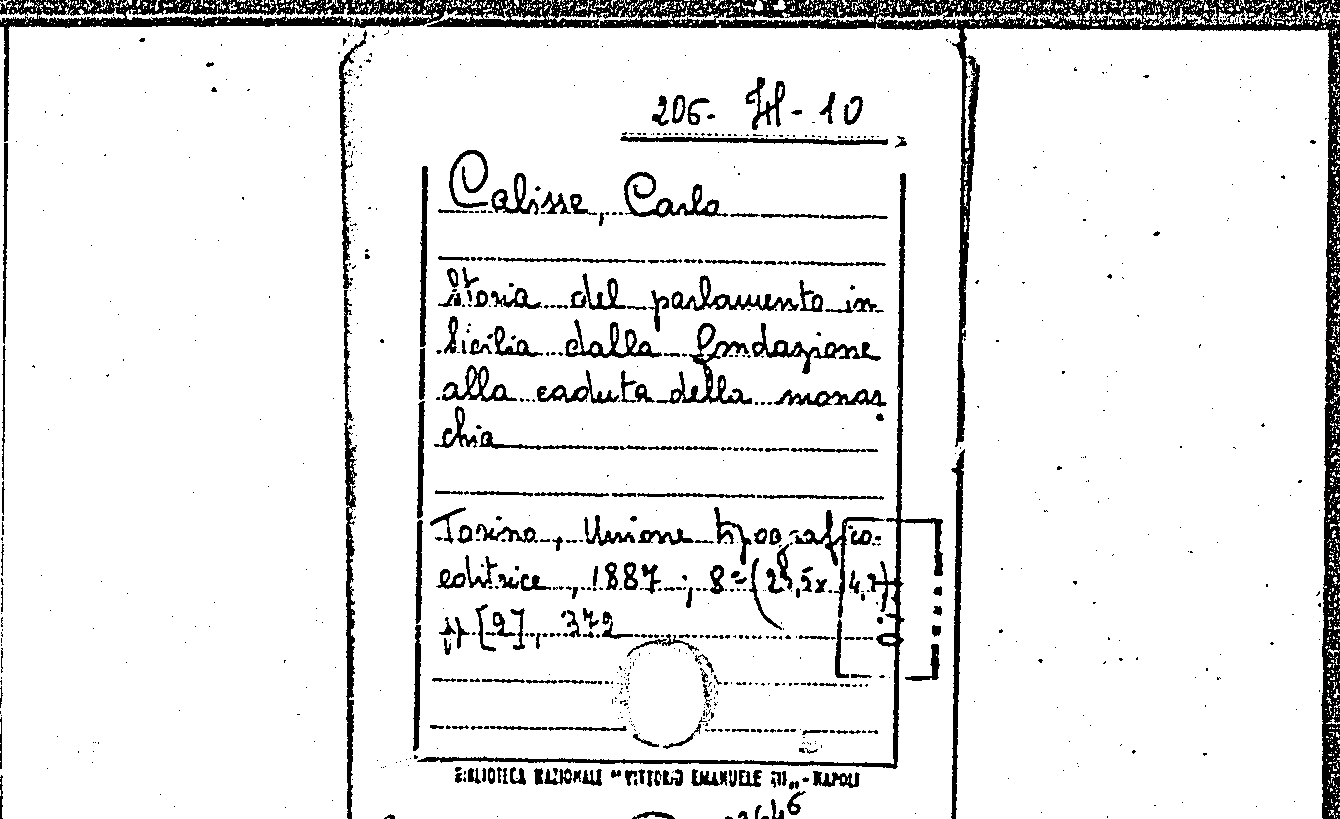 206- H - 10
Calisse, Carlo
Storia del parlamento in
Sicilia dalla fondazione
alla caduta della monar
chia
Torino, Unione tipografico-
editrice, 1887; 8º (23,5x14,7)
pp [2], 372
BIBLIOTECA NAZIONALE "VITTORIO EMANUELE III" - NAPOLI